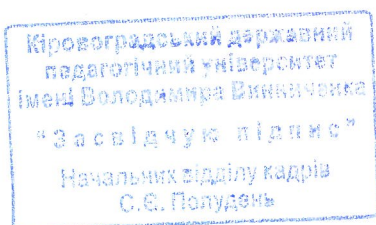 Кіровоградський державний
педагогічний університет
імені Володимира Винниченка
"Засвідчую підпис"
Начальник відділу кадрів
С.Є. Полудень